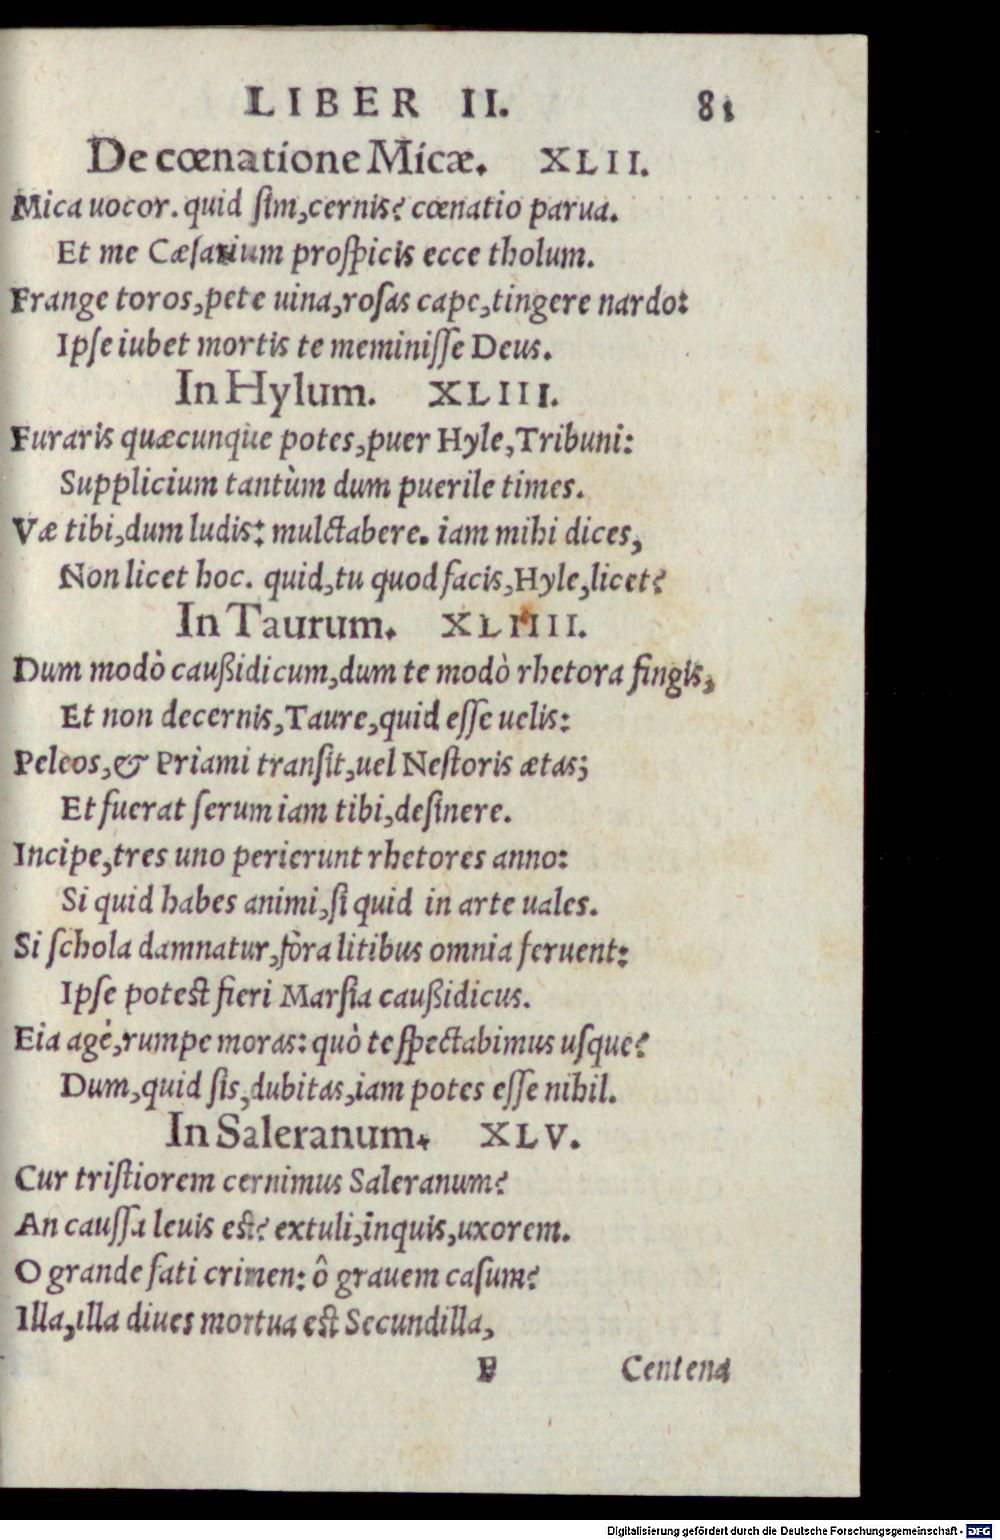 LIBER II. 81
De cœnatione Micæ. XLII.
Mica uocor. quid ſim, cernis? cœnatio parua.
Et me Cæſarium proſpicis ecce tholum.
Frange toros, pete uina, roſas cape, tingere nardo:
Ipſe iubet mortis te meminiſſe Deus.
In Hylum. XLIII.
Furaris quæcunque potes, puer Hyle, Tribuni:
Supplicium tantùm dum puerile times.
Væ tibi, dum ludis: mulctabere. iam mihi dices,
Non licet hoc. quid, tu quod facis, Hyle, licet?
In Taurum. XLIIII.
Dum modò cauſsidicum, dum te modò rhetora fingis,
Et non decernis, Taure, quid eſſe uelis:
Peleos, & Priami tranſit, uel Neſtoris ætas;
Et fuerat ſerum iam tibi, deſinere.
Incipe, tres uno perierunt rhetores anno:
Si quid habes animi, ſi quid in arte uales.
Si ſchola damnatur, fòra litibus omnia feruent:
Ipſe poteſt fieri Marſia cauſsidicus.
Eia agè, rumpe moras: quò te ſpectabimus uſque?
Dum, quid ſis, dubitas, iam potes eſſe nihil.
In Saleranum. XLV.
Cur triſtiorem cernimus Saleranum?
An cauſſa leuis eſt? extuli, inquis, uxorem.
O grande fati crimen: ô grauem caſum?
Illa, illa diues mortua eſt Secundilla,
F Centena
Digitalisierung gefördert durch die Deutsche Forschungsgemeinschaft - DFG